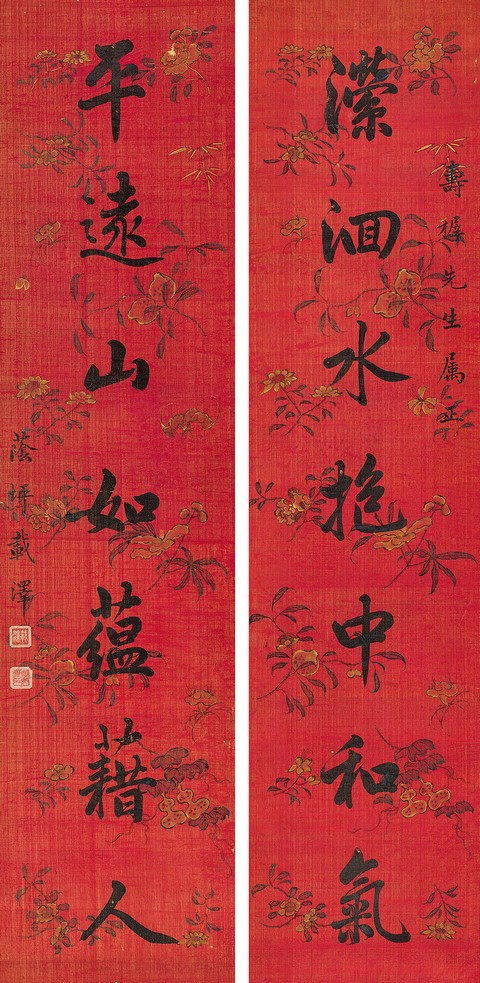 壽稺先生属正
瀠洄水抱中和氣
平遠山如藴藉人
蔭坪載澤